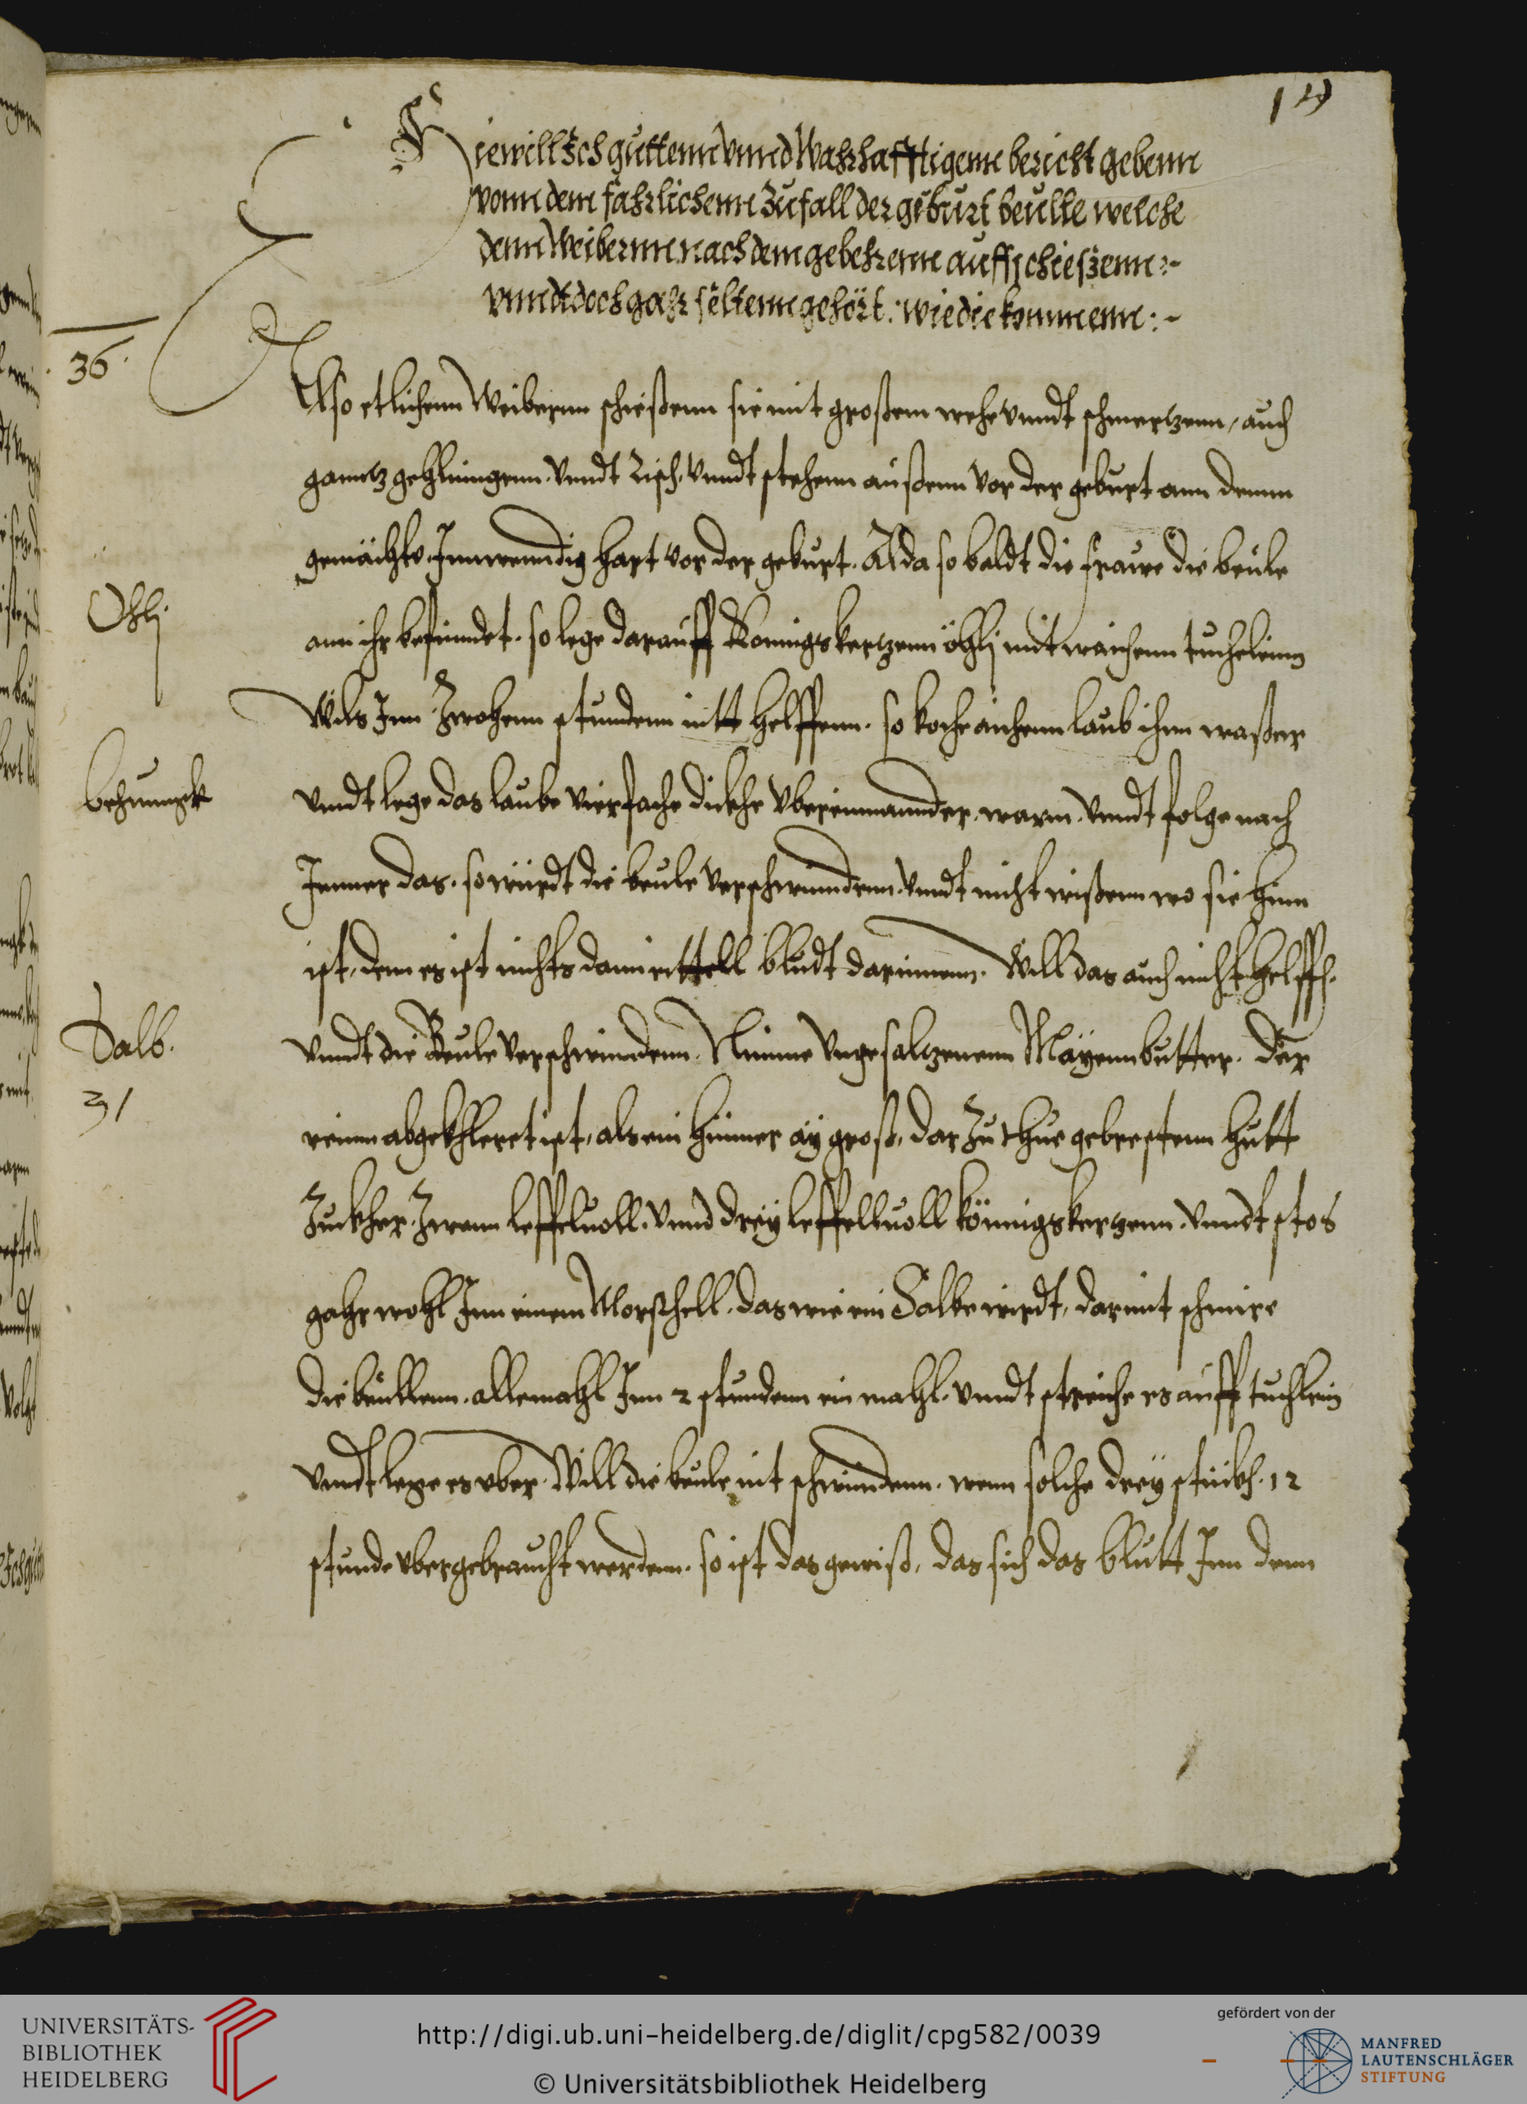 19
Hiewill Ich guttenn vnnd Wahrhafftigenn bericht gebenn
vonn dem fahrlichenn Zufall der geburt beulle welche
denn Weibernn nach dem gebehrenn auffschießenn :-
vnndt doch gahr seltenn gehört: wie die kommenn :-
36.
Also etlichenn Weibernn schießenn sie mit großem wehe vnndt schmertzenn, auch
ganntz gehlingenn. vnndt Risch, vnndt stehenn außenn vor der geburt ann denn
gemächte. Innwenndig hart vor der geburt. Alda so baldt die frauwe die beule
Ohlj
ann ihr befinndet. so lege darauff Konnigskertzenn öhlj mit waichenn tucheleinn
Wils Inn Zwehenn stundenn nitt helffenn. so koche aichenn laub ihnn waßer
behunngk
vnndt lege das laube vierfache dickhe vbereinnannder, warm. vnndt folge nach
Immer das. so würdt die beule verschwinndenn. vnndt nicht wißenn wo sie hinn
ist, denn es ist nichts dann eittell bludt darinnenn. Will das auch nicht helffh.
Salb.
31
vnndt die Beule verschwindenn. Nimme vngesaltzenenn Mayennbutter. der
reinn abgekhleret ist, als ein hünner äy groß, dar Zu thue gebrestenn hutt
Zuckher. Zwenn leffeluoll. vnnd drey leffelluoll könnigskertzenn. vnndt stos
gahr wohl Inn einem Morschell. das wie ein Salbe wirdt, darmit schmire
die beullenn. allemahl Inn 2 stundenn ein mahl. vnndt streiche es auff tuchlein
vnndt lege es vber. Will die beule nit schwindenn. wenn solche drey stückh. 12
stunde vber gebraucht werdenn. so ist das gewiß, das sich das blutt Inn denn
UNIVERSITÄTS-
BIBLIOTHEK
HEIDELBERG
http://digi.ub.uni-heidelberg.de/diglit/cpg582/0039
© Universitätsbibliothek Heidelberg
gefördert von der
MANFRED
LAUTENSCHLÄGER
STIFTUNG